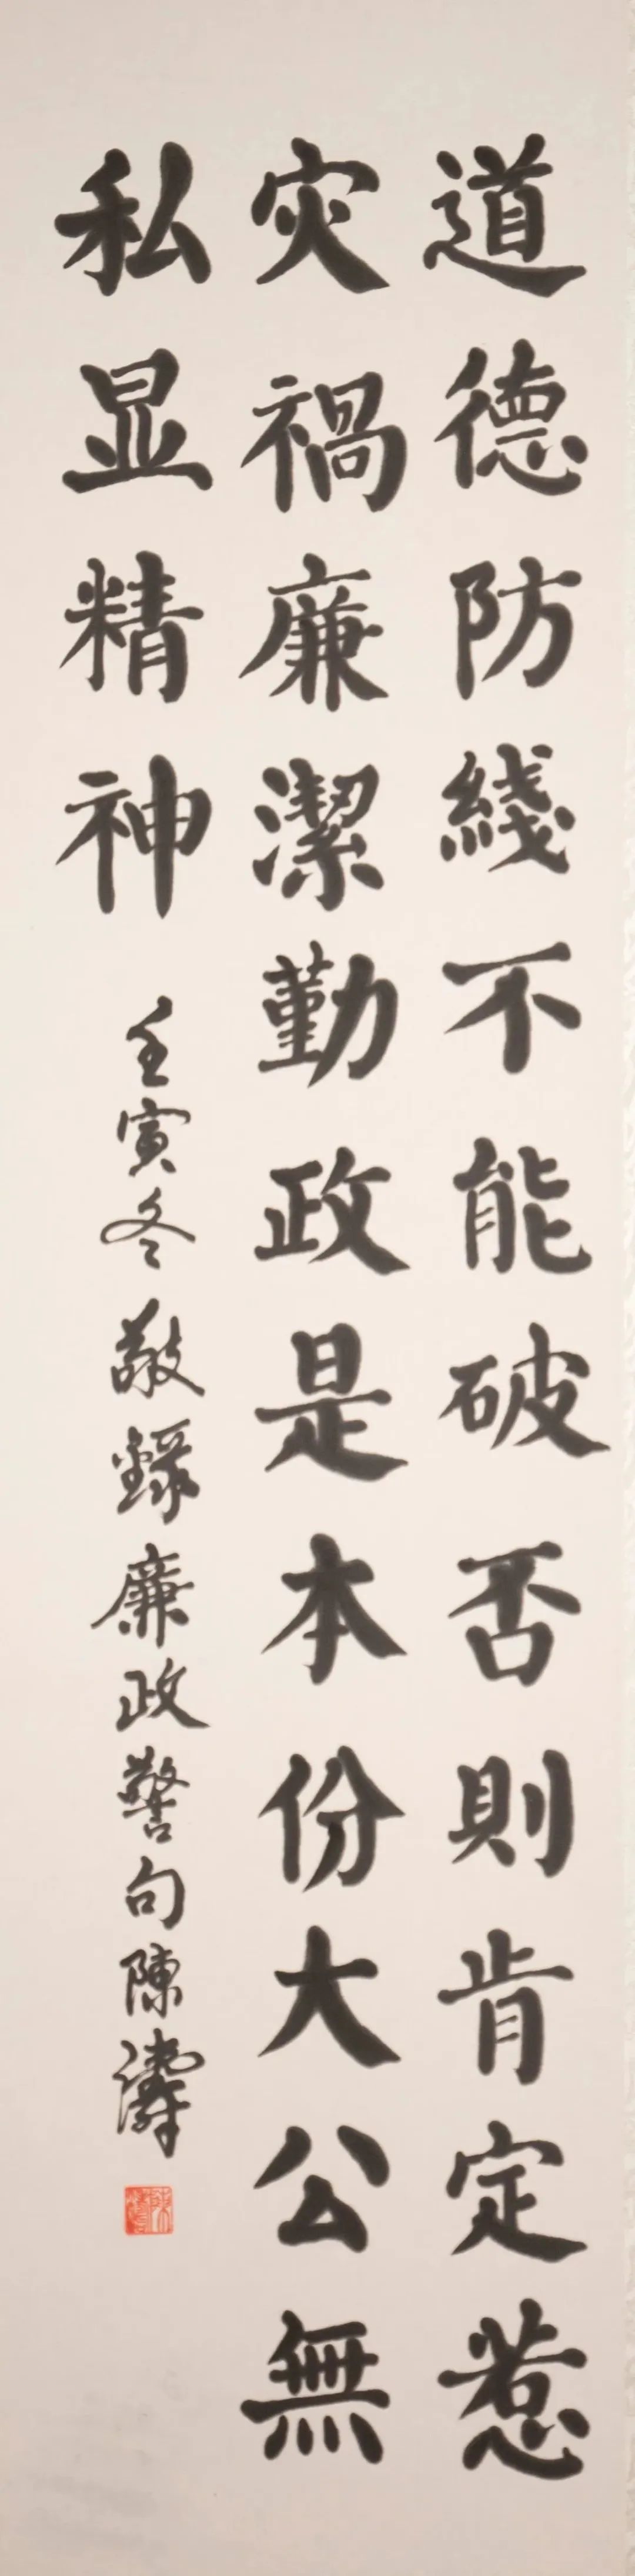 道德防綫不能破否則肯定惹
灾禍廉潔勤政是本份大公無
私显精神
壬寅冬敬録廉政警句陳濤